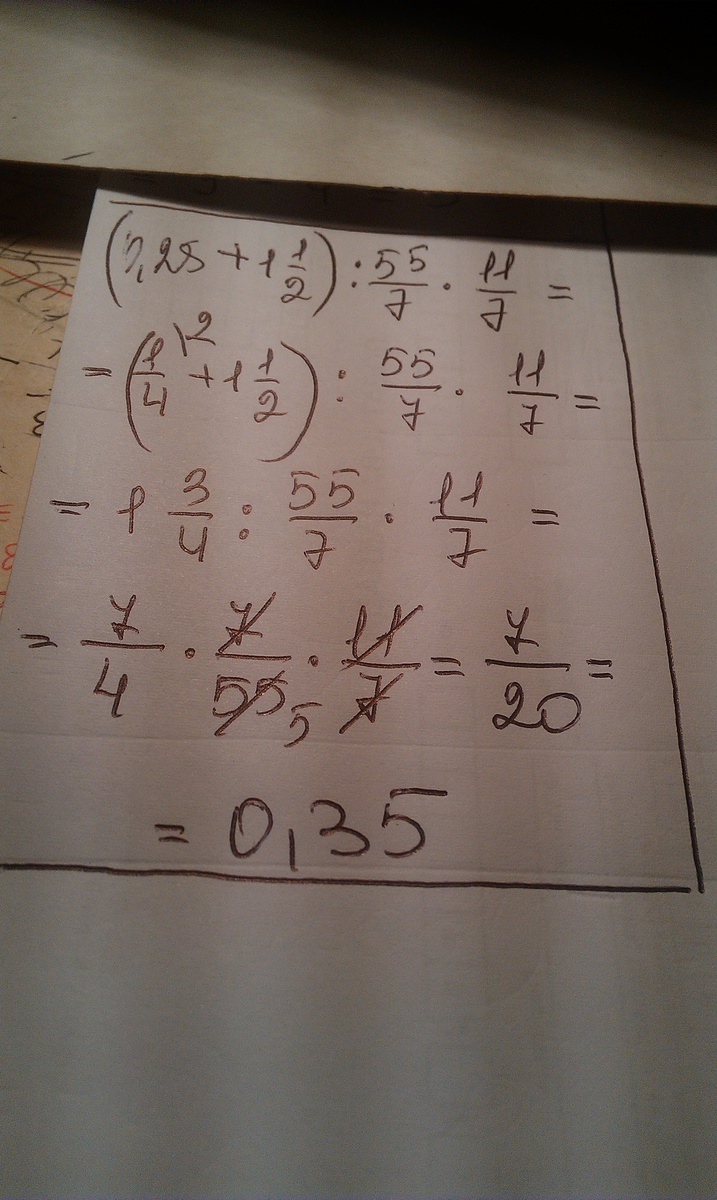 (0,25 + 1 1/2) : 55/7 · 11/7 =
= (1/4 \2 + 1 1/2) : 55/7 · 11/7 =
= 1 3/4 : 55/7 · 11/7 =
= 7/4 · 7/55 5 · 11/7 = 7/20 =
= 0,35